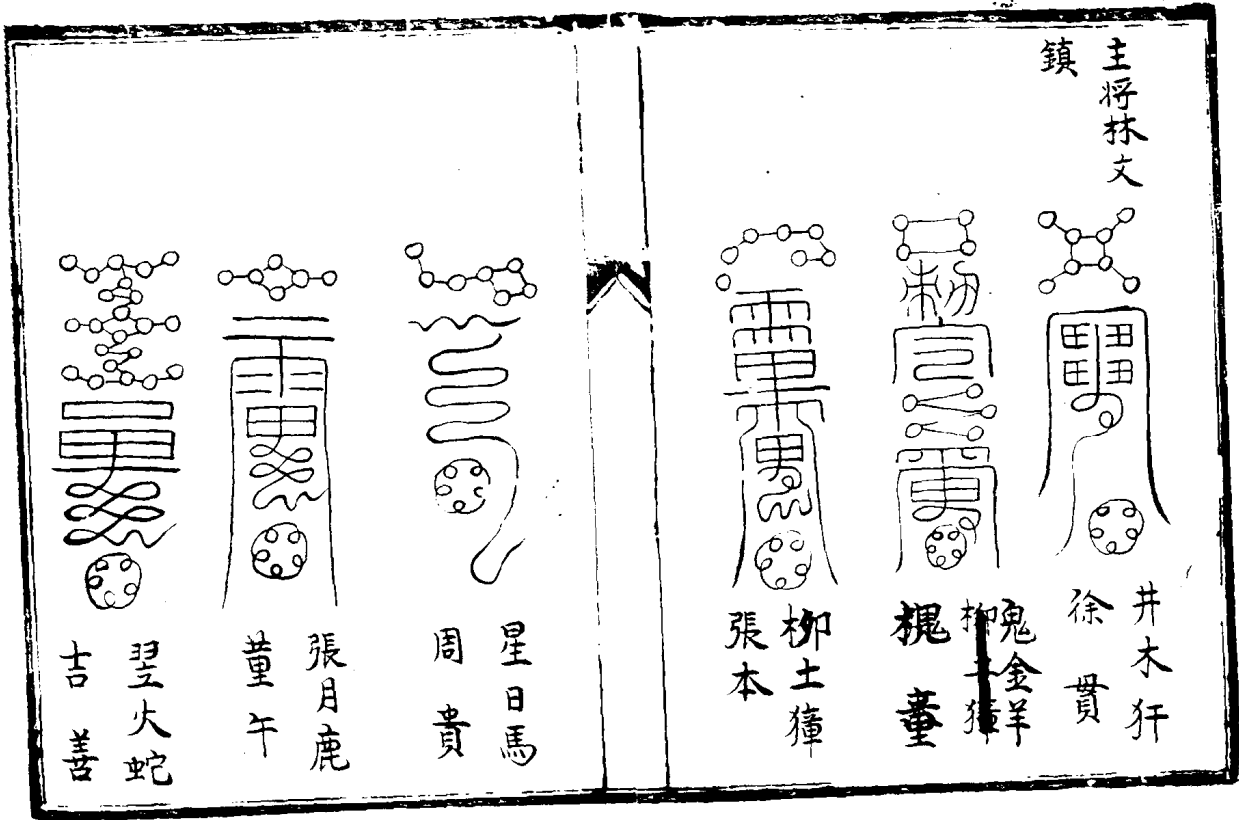 主将林文
鎮
井木犴
徐貫
鬼金羊
柳土獐
槐童
柳土獐
張本
星日馬
周貴
張月鹿
董午
翌火蛇
吉善